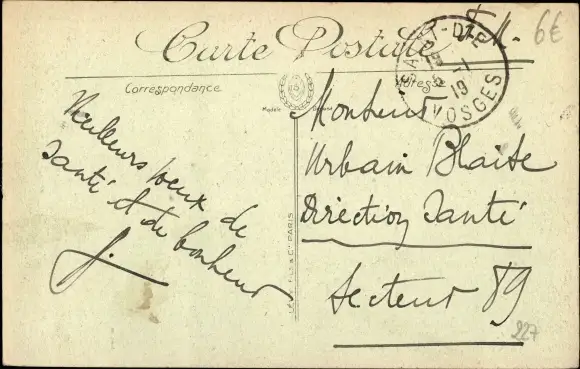 F. M.
6€
Carte Postale
SAINT-DIÉ
5 -1
19
VOSGES
Correspondance
Adresse
Modèle Déposé
Meilleurs voeux de
santé et de bonheur
J.
Monsieur
Urbain Blaise
Direction Santé
Secteur 89
227
& Cie PARIS